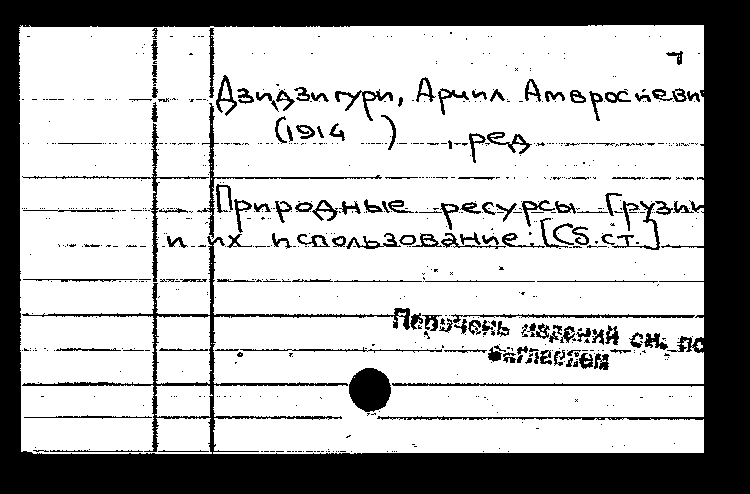 Дзидзигури, Арчил Амвросиеви
(1914 ) , ред
Природные ресурсы Грузии
и их использование: [Сб.ст.]
Перечень изданий см. по
заглавием